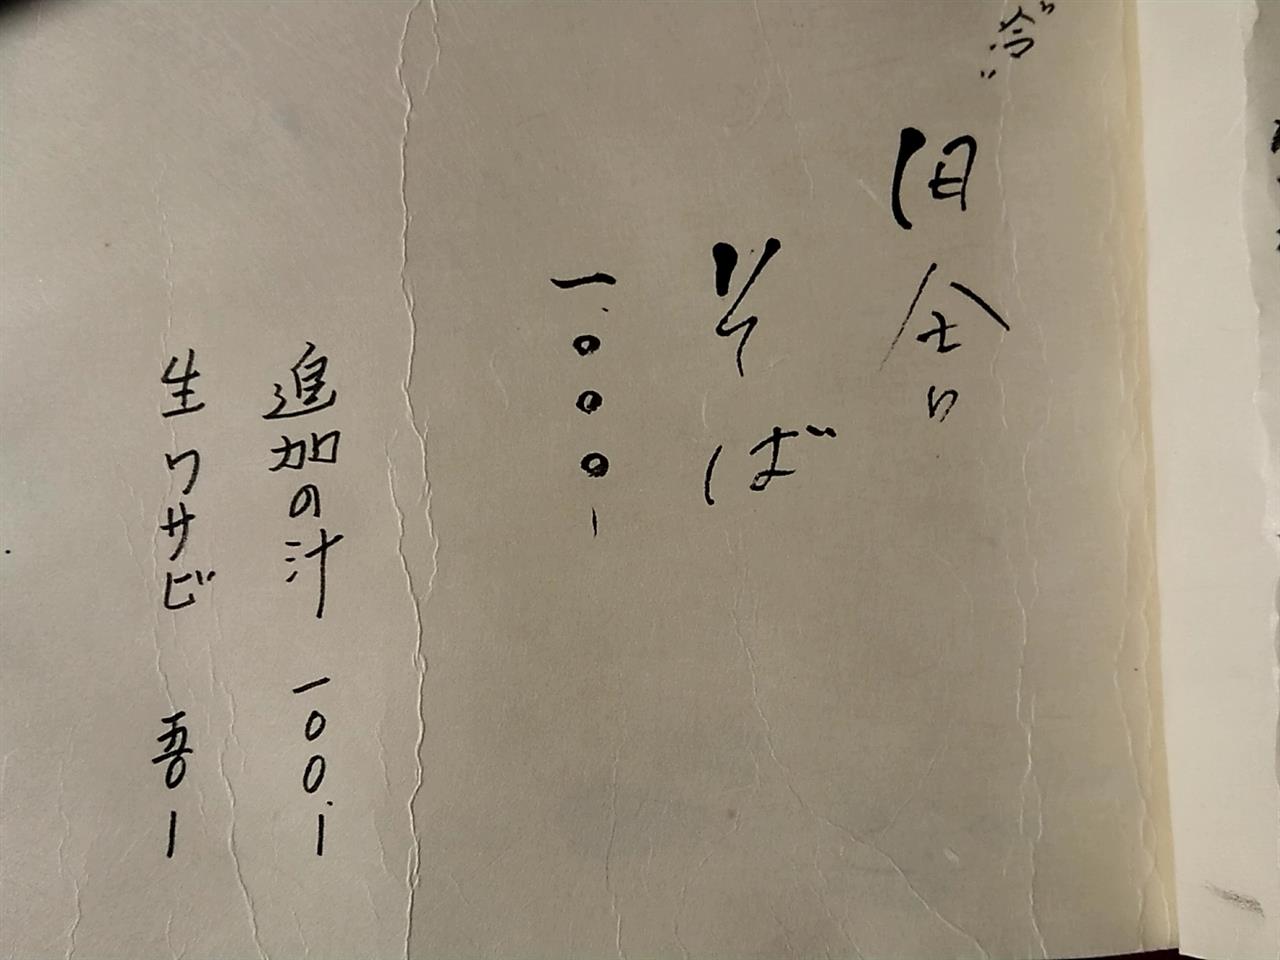 "冷"
そば
一.〇〇〇ー
追加の汁 一〇〇.ー
生ワサビ 五〇ー